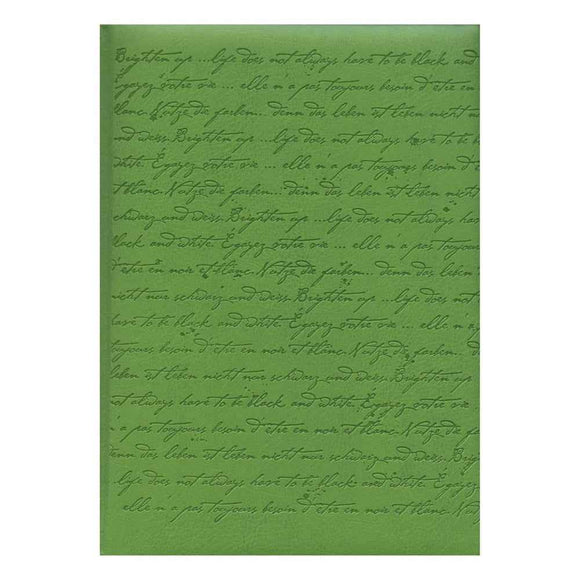 Brighten up ...life does not always have to be black and
Egayez votre vie ... elle n'a pas toujours besoin d'etre en
blanc. Nutze die farben... denn das leben ist nicht nur
und weiss. Brighten up ...life does not always have to be b
white. Égayez votre vie ... elle n'a pas toujours besoin d'
blanc. Nutze die farben... denn das leben ist nicht
schwarz und weiss. Brighten up ...life does not always have
black and white. Égayez votre vie ... elle n'a pas toujours
d'etre en noir et blanc. Nutze die farben... denn das leben
nicht nur schwarz und weiss. Brighten up ...life does not
have to be black and white. Égayez votre vie ... elle n'a
toujours besoin d'etre en noir et blanc. Nutze die farben... den
leben ist nicht nur schwarz und weiss. Brighten up
not always have to be black and white. Égayez votre vie ...
n'a pas toujours besoin d'etre en noir et blanc. Nutze die fa
denn das leben ist nicht nur schwarz und weiss. Brighten up
life does not always have to be black and white. Égayez vot
elle n'a pas toujours besoin d'etre en noir et blanc. Nut